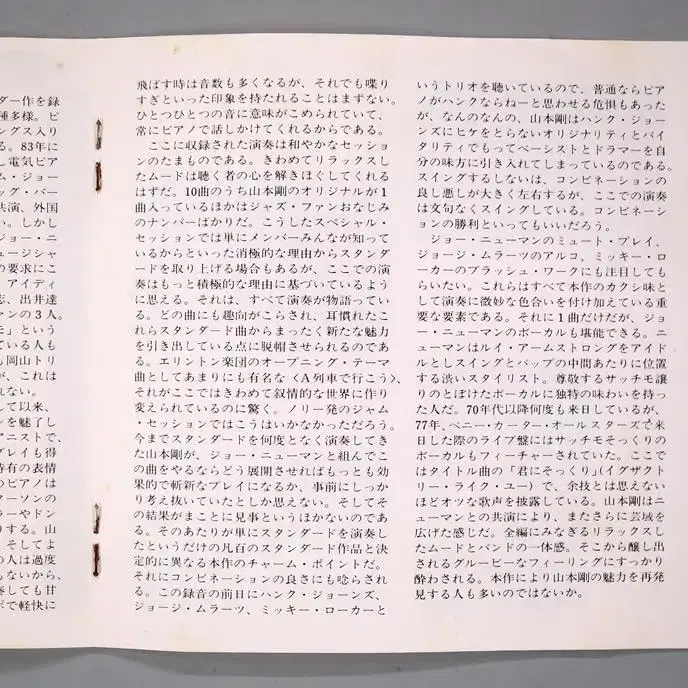 ダー作を録
種多様。ピ
ングス入り
る。83年に
し電気ピア
ム・ジョー
ッグ・バー
共演、外国
い。しかし
ジョー・ニ
ュージシャ
の要求にこ
。アイディ
志、出井達
ァンの3人。
モ」という
ている人も
も岡山トリ
が、これは
れない。
して以来、
ンを魅了し
アニストで、
プレイも得
特有の表情
のピアノは
ターソンの
ラーやドン
りする。山
。そしてよ
の人は過度
もないから、
奏しても甘
ポで軽快に
飛ばす時は音数も多くなるが、それでも喋り
すぎといった印象を持たれることはまずない。
ひとつひとつの音に意味がこめられていて、
常にピアノで話しかけてくれるからである。
ここに収録された演奏は和やかなセッショ
ンのたまものである。きわめてリラックスし
たムードは聴く者の心を解きほぐしてくれる
はずだ。10曲のうち山本剛のオリジナルが1
曲入っているほかはジャズ・ファンおなじみ
のナンバーばかりだ。こうしたスペシャル・
セッションでは単にメンバーみんなが知って
いるからといった消極的な理由からスタンダ
ードを取り上げる場合もあるが、ここでの演
奏はもっと積極的な理由に基づいているよう
に思える。それは、すべて演奏が物語ってい
る。どの曲にも趣向がこらされ、耳慣れたこ
れらスタンダード曲からまったく新たな魅力
を引き出している点に脱帽させられるのであ
る。エリントン楽団のオープニング・テーマ
曲としてあまりにも有名な〈A列車で行こう〉、
それがここではきわめて叙情的な世界に作り
変えられているのに驚く。ノリ一発のジャム
・セッションではこうはいかなかっただろう。
今までスタンダードを何度となく演奏してき
た山本剛が、ジョー・ニューマンと組んでこ
の曲をやるならどう展開させればもっとも効
果的で斬新なプレイになるか、事前にしっか
り考え抜いていたとしか思えない。そしてそ
の結果がまことに見事というほかないのであ
る。そのあたりが単にスタンダードを演奏し
たというだけの凡百のスタンダード作品と決
定的に異なる本作のチャーム・ポイントだ。
それにコンビネーションの良さにも唸らされ
る。この録音の前日にハンク・ジョーンズ、
ジョージ・ムラーツ、ミッキー・ローカーと
いうトリオを聴いているので、普通ならピア
ノがハンクならねーと思わせる危惧もあった
が、なんのなんの、山本剛はハンク・ジョー
ンズにヒケをとらないオリジナリティとバイ
タリティでもってベーシストとドラマーを自
分の味方に引き入れてしまっているのである。
スイングするしないは、コンビネーションの
良し悪しが大きく左右するが、ここでの演奏
は文句なくスイングしている。コンビネーシ
ョンの勝利といってもいいだろう。
ジョー・ニューマンのミュート・プレイ、
ジョージ・ムラーツのアルコ、ミッキー・ロ
ーカーのブラッシュ・ワークにも注目しても
らいたい。これらはすべて本作のカクシ味と
して演奏に微妙な色合いを付け加えている重
要な要素である。それに1曲だけだが、ジョ
ー・ニューマンのボーカルも堪能できる。ニ
ューマンはルイ・アームストロングをアイド
ルとしスイングとバップの中間あたりに位置
する渋いスタイリスト。尊敬するサッチモ譲
りのとぼけたボーカルに独特の味わいを持っ
た人だ。70年代以降何度も来日しているが、
77年、ベニー・カーター・オールスターズで来
日した際のライブ盤にはサッチモそっくりの
ボーカルもフィーチャーされていた。ここで
はタイトル曲の「君にそっくり」(イグザクト
リー・ライク・ユー)で、余技とは思えない
ほどオツな歌声を披露している。山本剛はニ
ューマンとの共演により、またさらに芸域を
広げた感じだ。全編にみなぎるリラックスし
たムードとバンドの一体感。そこから醸し出
されるグルービーなフィーリングにすっかり
酔わされる。本作により山本剛の魅力を再発
見する人も多いのではないか。